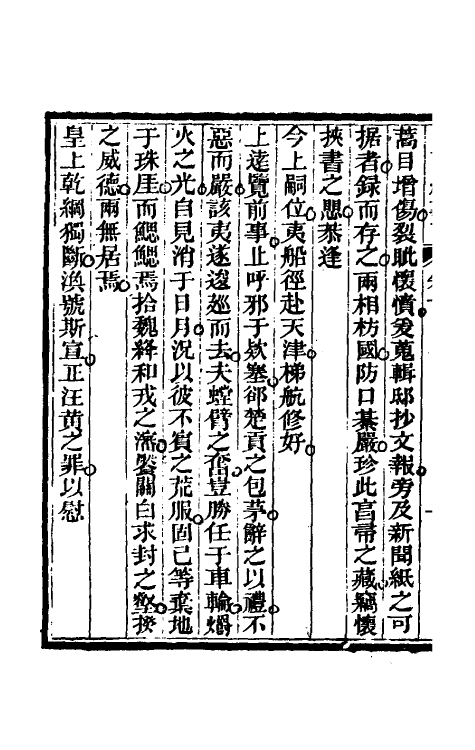 蒿目增傷裂眦懷憤爰蒐輯邸抄文報旁及新聞紙之可
据者錄而存之兩相枋國防口綦嚴珍此享帚之藏竊懷
挾書之懇恭逢
今上嗣位夷船徑赴天津梯航修好
上遠覽前事止呼邪于欵塞郤楚貢之包茅辭之以禮不
惡而嚴該夷遂逡廵而去夫螳臂之奮豈勝任于車輪爝
火之光自見消于日月況以彼不賓之荒服固已等棄地
于珠厓而鰓鰓焉拾魏絳和戎之瀋襲關白求封之壑揆
之威德兩無居焉
皇上乾綱獨斷渙號斯宣正汪黃之罪以慰